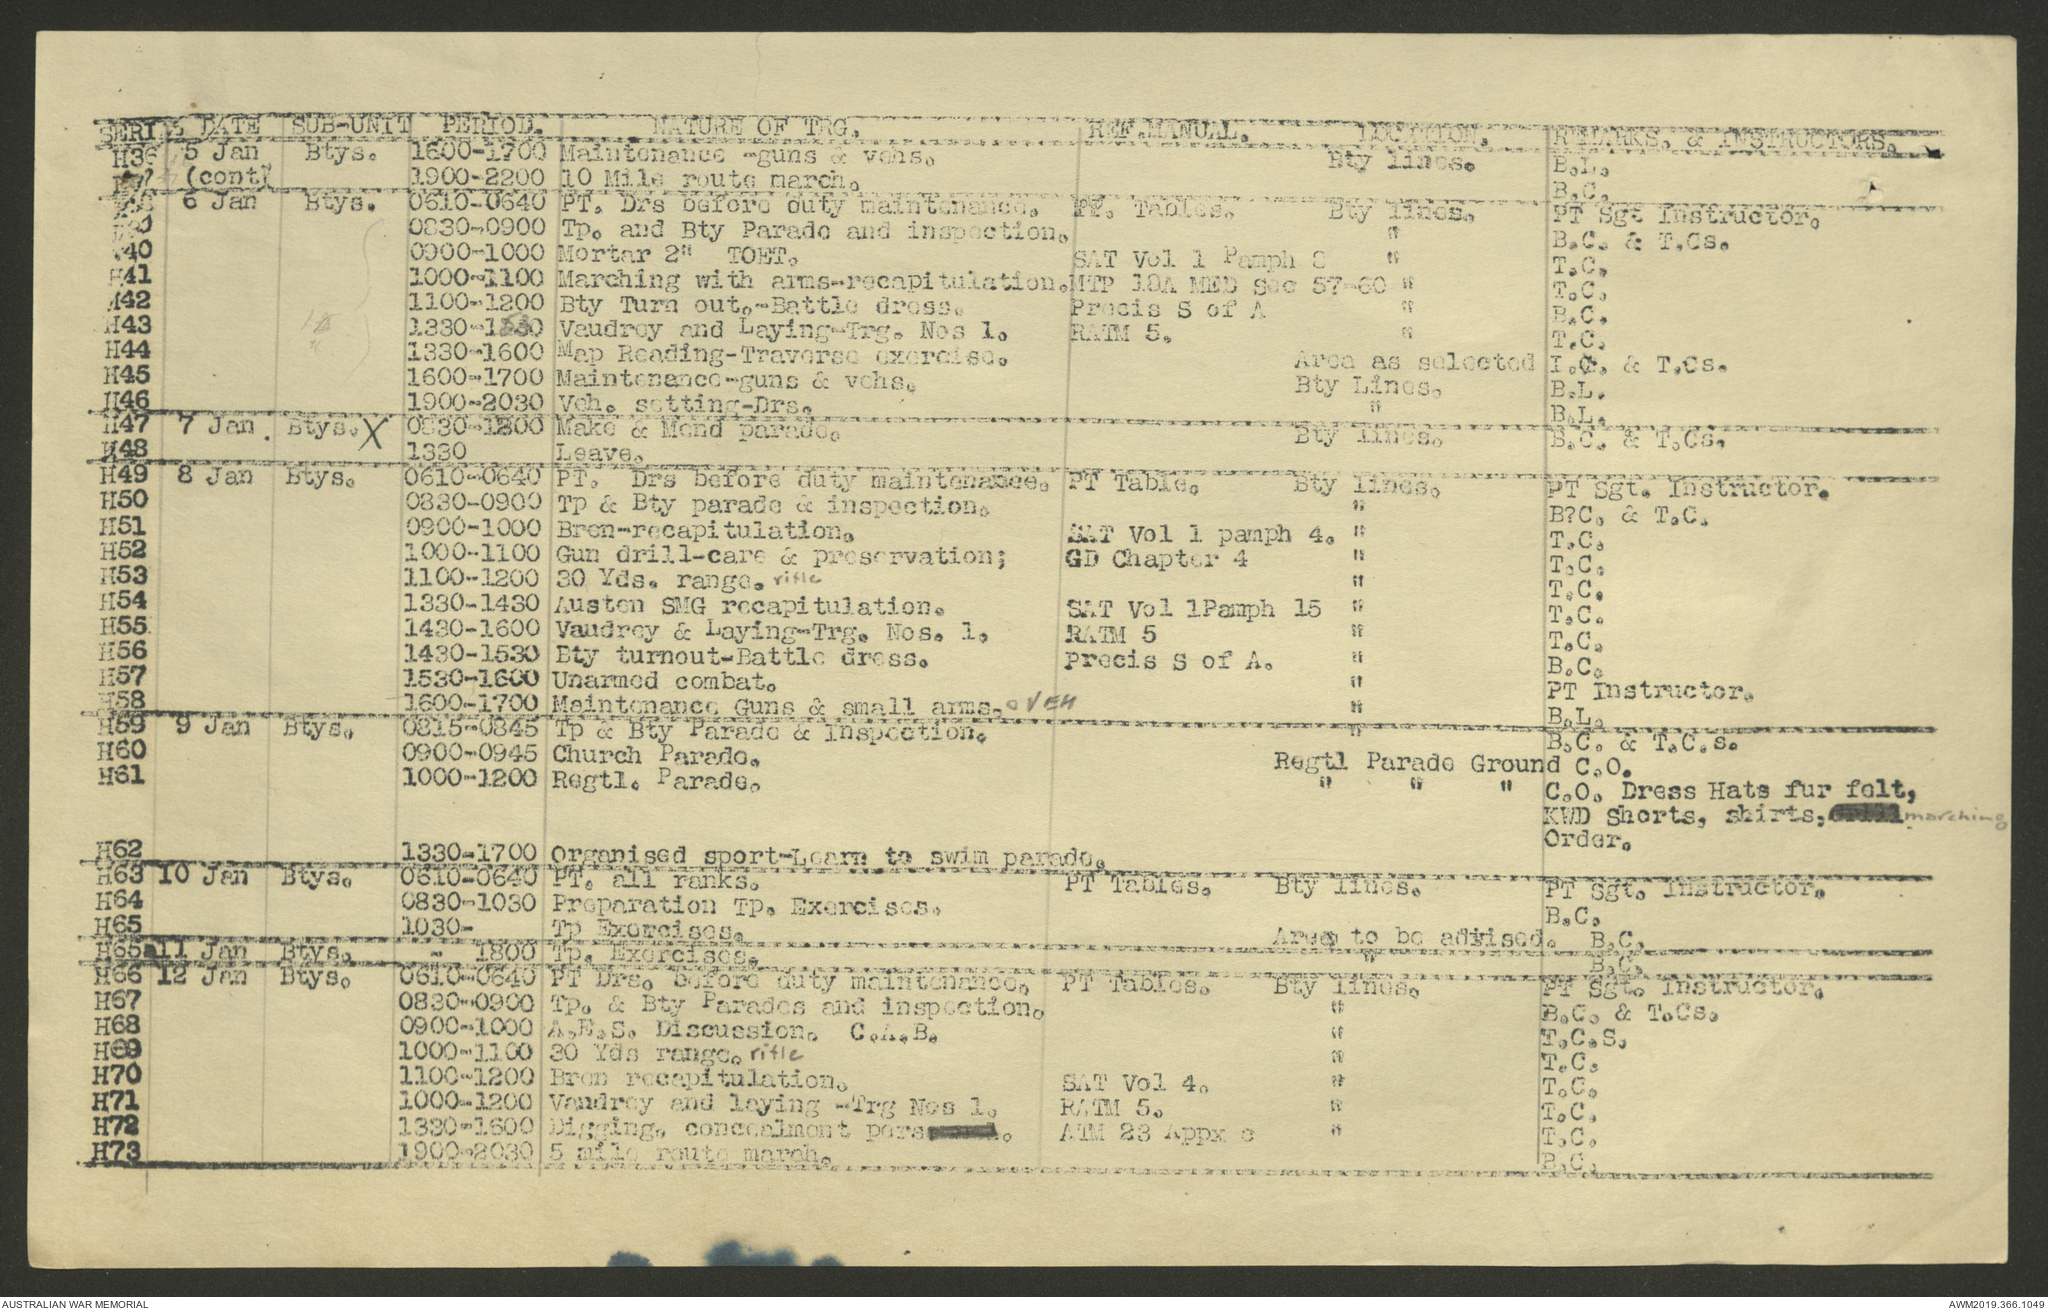 SERIAL DATE SUB-UNIT PERIOD. NATURE OF TRG. REF.MANUAL. LOCATION. REMARKS. & INSTRUCTORS.
H36 5 Jan Btys. 1600-1700 Maintenance -guns & vehs. Bty lines. B.L.
H37 (cont) 1900-2200 10 Mile route march. B.C.
H38 6 Jan Btys. 0610-0640 PT. Drs before duty maintenance. PT. Tables. Bty lines. PT Sgt Instructor.
H39 0830-0900 Tp. and Bty Parade and inspection. " B.C. & T.Cs.
H40 0900-1000 Mortar 2" TOET. SAT Vol 1 Pamph 8 " T.C.
H41 1000-1100 Marching with arms-recapitulation. MTP 18A MED Sec 57-60 " T.C.
H42 1100-1200 Bty Turn out.-Battle dress. Precis S of A " B.C.
H43 1330-1530 Vaudrey and Laying-Trg. Nos 1. RATM 5. " T.C.
H44 1330-1600 Map Reading-Traverse exercise. Area as selected I.O. & T.Cs.
H45 1600-1700 Maintenance-guns & vehs. Bty Lines. B.L.
H46 1900-2030 Veh. setting-Drs. " B.L.
H47 7 Jan. Btys. X 0830-1200 Make & Mend parade. Bty lines. B.C. & T.Cs.
H48 1330 Leave.
H49 8 Jan Btys. 0610-0640 PT. Drs before duty maintenance. PT Table. Bty lines. PT Sgt. Instructor.
H50 0830-0900 Tp & Bty parade & inspection. " B?C. & T.C.
H51 0900-1000 Bren-recapitulation. SAT Vol 1 pamph 4. " T.C.
H52 1000-1100 Gun drill-care & preservation; GD Chapter 4 " T.C.
H53 1100-1200 30 Yds. range. rifle " T.C.
H54 1330-1430 Austen SMG recapitulation. SAT Vol 1Pamph 15 " T.C.
H55 1430-1600 Vaudrey & Laying-Trg. Nos. 1. RATM 5 " T.C.
H56 1430-1530 Bty turnout-Battle dress. Precis S of A. " B.C.
H57 1530-1600 Unarmed combat. " PT Instructor.
H58 1600-1700 Maintenance Guns & small arms. o VEH " B.L.
H59 9 Jan Btys. 0815-0845 Tp & Bty Parade & Inspection. " B.C. & T.C.s.
H60 0900-0945 Church Parade. Regtl Parade Ground C.O.
H61 1000-1200 Regtl. Parade. " " " C.O. Dress Hats fur felt,
KWD Shorts, shirts, marching
Order.
H62 1330-1700 Organised sport-Learn to swim parade.
H63 10 Jan Btys. 0610-0640 PT. all ranks. PT Tables. Bty lines. PT Sgt. Instructor.
H64 0830-1030 Preparation Tp. Exercises. B.C.
H65 1030- Tp Exercises. Area to be advised. B.C.
H65a 11 Jan Btys. - 1800 Tp. Exercises. " B.C.
H66 12 Jan Btys. 0610-0640 PT Drs. before duty maintenance. PT Tables. Bty lines. PT Sgt. Instructor.
H67 0830-0900 Tp. & Bty Parades and inspection. " B.C. & T.Cs.
H68 0900-1000 A.E.S. Discussion. C.A.B. " T.C.S.
H69 1000-1100 30 Yds range. rifle " T.C.
H70 1100-1200 Bren recapitulation. SAT Vol 4. " T.C.
H71 1000-1200 Vaudrey and laying -Trg Nos 1. RATM 5. " T.C.
H72 1330-1600 Digging. concealment pers . ATM 23 Appx c " T.C.
H73 1900-2030 5 mile route march. B.C.
AUSTRALIAN WAR MEMORIAL AWM2019.366.1049